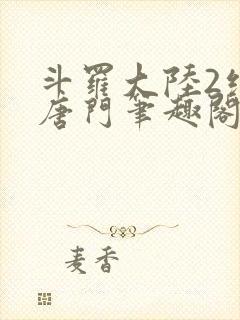 斗羅大陸2
唐門筆趣閣
麦香